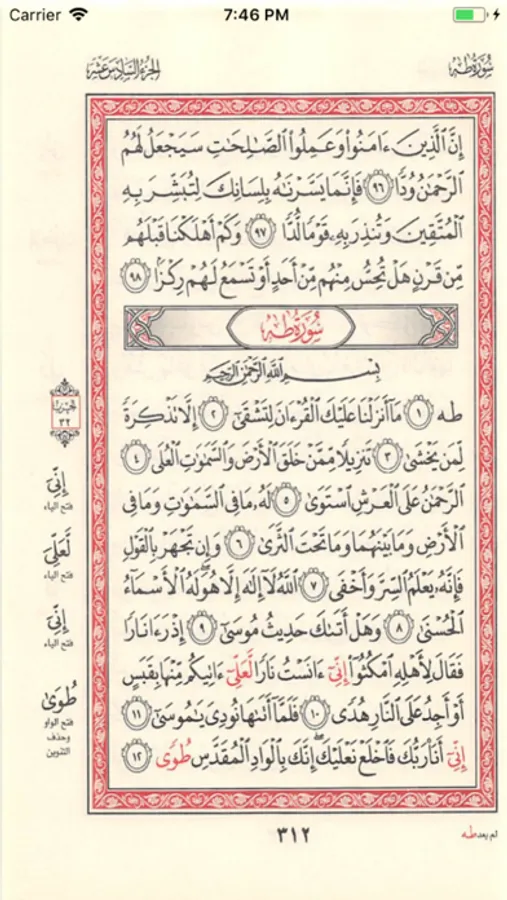 Carrier 7:46 PM
سُورَةُ طه
الجزء السادس عشر
إِنَّ ٱلَّذِينَ ءَامَنُوا۟ وَعَمِلُوا۟ ٱلصَّـٰلِحَـٰتِ سَيَجْعَلُ لَهُمُ
ٱلرَّحْمَـٰنُ وُدًّا ٩٦ فَإِنَّمَا يَسَّرْنَـٰهُ بِلِسَانِكَ لِتُبَشِّرَ بِهِ
ٱلْمُتَّقِينَ وَتُنذِرَ بِهِۦ قَوْمًا لُّدًّا ٩٧ وَكَمْ أَهْلَكْنَا قَبْلَهُم
مِّن قَرْنٍ هَلْ تُحِسُّ مِنْهُم مِّنْ أَحَدٍ أَوْ تَسْمَعُ لَهُمْ رِكْزًۢا ٩٨
سُورَةُ طه
بِسْمِ ٱللَّهِ ٱلرَّحْمَـٰنِ ٱلرَّحِيمِ
طه ١ مَآ أَنزَلْنَا عَلَيْكَ ٱلْقُرْءَانَ لِتَشْقَىٰٓ ٢ إِلَّا تَذْكِرَةً
لِّمَن يَخْشَىٰ ٣ تَنزِيلًا مِّمَّنْ خَلَقَ ٱلْأَرْضَ وَٱلسَّمَـٰوَٰتِ ٱلْعُلَى ٤
ٱلرَّحْمَـٰنُ عَلَى ٱلْعَرْشِ ٱسْتَوَىٰ ٥ لَهُۥ مَا فِى ٱلسَّمَـٰوَٰتِ وَمَا فِى
ٱلْأَرْضِ وَمَا بَيْنَهُمَا وَمَا تَحْتَ ٱلثَّرَىٰ ٦ وَإِن تَجْهَرْ بِٱلْقَوْلِ
فَإِنَّهُۥ يَعْلَمُ ٱلسِّرَّ وَأَخْفَى ٧ ٱللَّهُ لَآ إِلَـٰهَ إِلَّا هُوَ ۖ لَهُ ٱلْأَسْمَآءُ
ٱلْحُسْنَىٰ ٨ وَهَلْ أَتَىٰكَ حَدِيثُ مُوسَىٰٓ ٩ إِذْ رَءَا نَارًا
فَقَالَ لِأَهْلِهِ ٱمْكُثُوٓا۟ إِنِّىَ ءَانَسْتُ نَارًا لَّعَلِّىَ ءَاتِيكُم مِّنْهَا بِقَبَسٍ
أَوْ أَجِدُ عَلَى ٱلنَّارِ هُدًى ١٠ فَلَمَّآ أَتَىٰهَا نُودِىَ يَـٰمُوسَىٰٓ ١١
إِنِّىَ أَنَا۠ رَبُّكَ فَٱخْلَعْ نَعْلَيْكَ ۖ إِنَّكَ بِٱلْوَادِ ٱلْمُقَدَّسِ طُوَىٰ ١٢
٣٢
إِنِّىَ
فتح الياء
لَّعَلِّىَ
فتح الياء
إِنِّىَ
فتح الياء
طُوَىٰ
فتح الواو
وحذف
التنوين
٣١٢
لم يعد طه